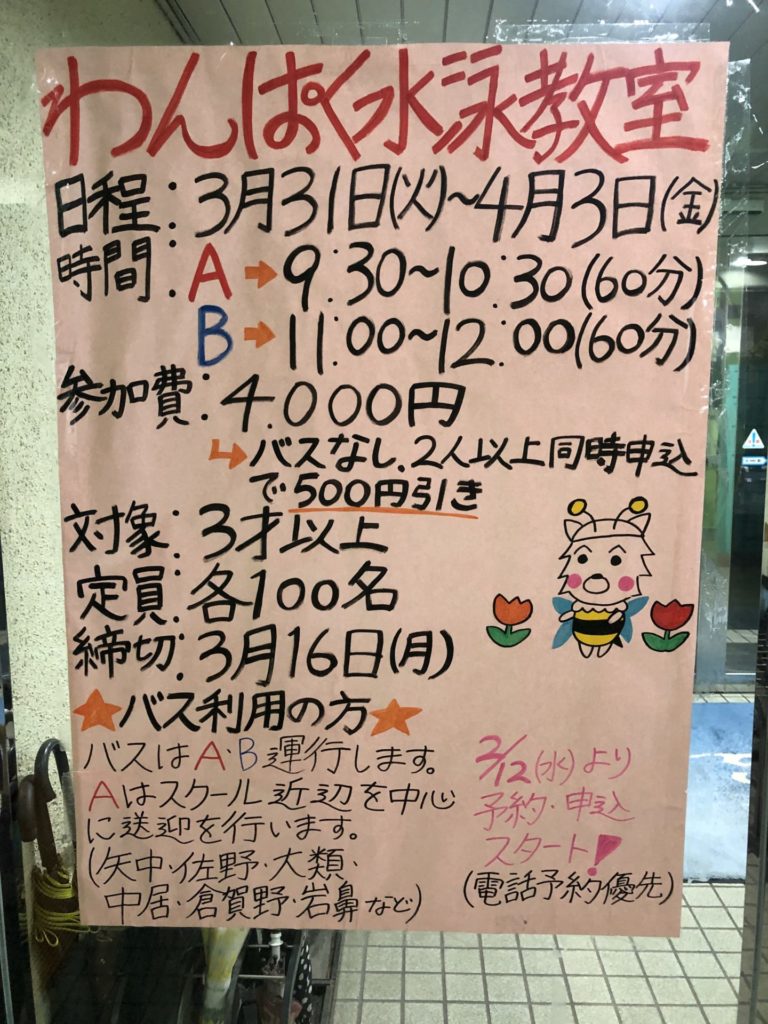 わんぱく水泳教室
日程:3月31日(火)〜4月3日(金)
時間:A→9:30〜10:30(60分)
B→11:00〜12:00(60分)
参加費:4.000円
↳バスなし、2人以上同時申込
で500円引き
対象:3才以上
定員:各100名
締切:3月16日(月)
★バス利用の方★
バスはA・B運行します。
Aはスクール近辺を中心
に送迎を行います。
(矢中・佐野・大類・
中居・倉賀野・岩鼻など)
2/12(水)より
予約・申込
スタート!
(電話予約優先)